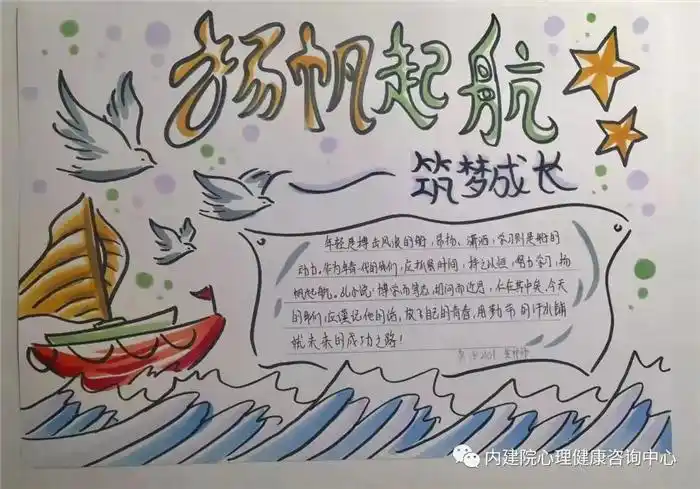 扬帆起航
筑梦成长
年轻是搏击风浪的船，昂扬、潇洒，学习则是船的
动力。作为年轻一代的我们，应抓紧时间，持之以恒，努力学习，扬
帆起航。孔子说：博学而笃志，切问而近思，仁在其中矣。今天
的我们，应谨记他的话，放飞自己的青春，用勤劳的汗水铺
就未来的成功之路！
内建院心理健康咨询中心